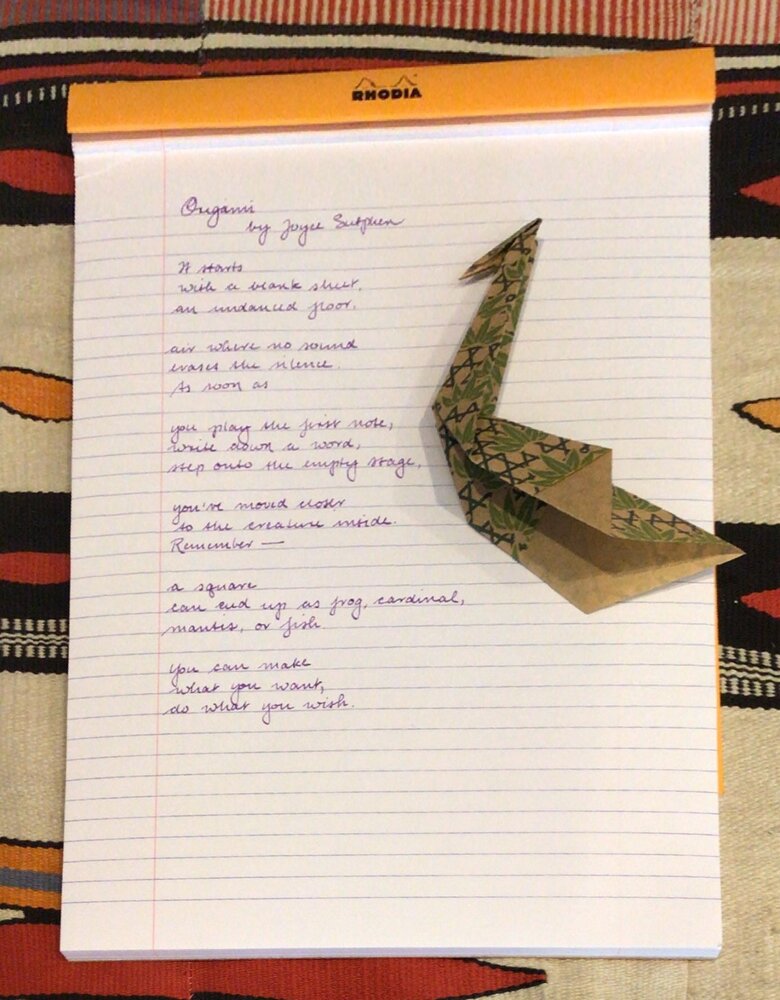 RHODIA
Origami
by Joyce Sutphen
It starts
with a blank sheet,
an undanced floor,
air where no sound
erases the silence.
As soon as
you play the first note,
write down a word,
step onto the empty stage,
you've moved closer
to the creature inside.
Remember —
a square
can end up as frog, cardinal,
mantis, or fish.
you can make
what you want,
do what you wish.